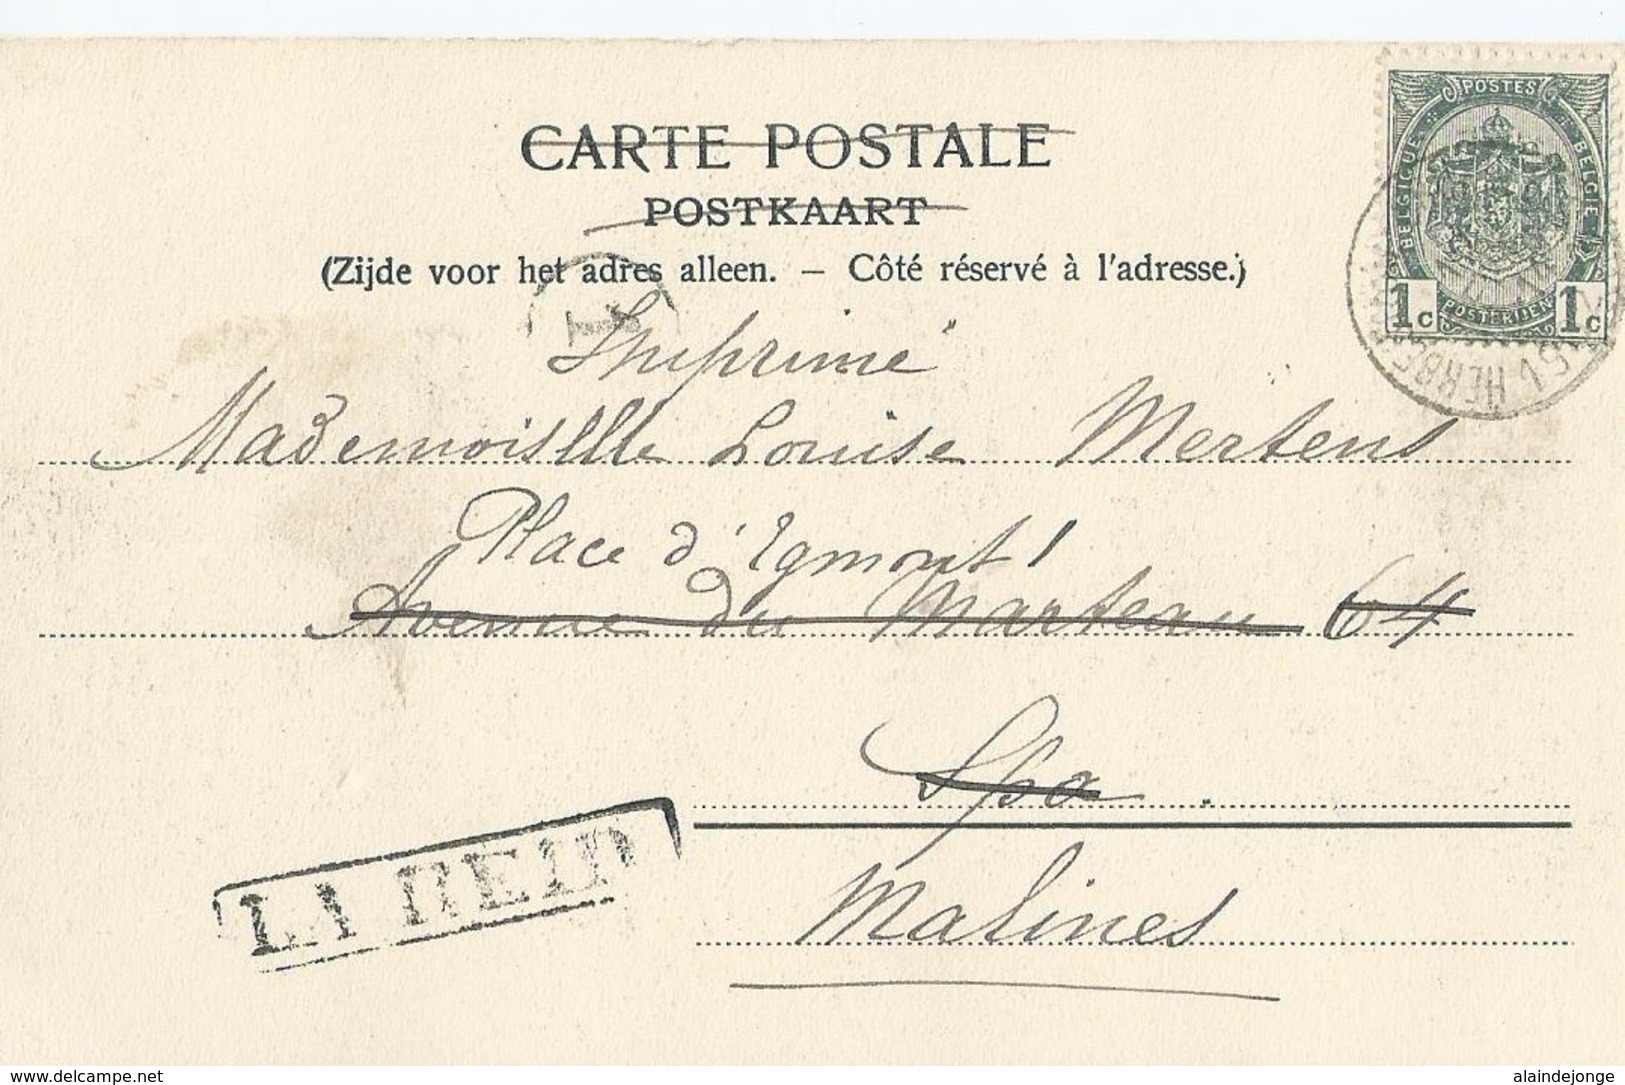 CARTE POSTALE
POSTKAART
(Zijde voor het adres alleen. – Côté réservé à l'adresse.)
POSTES
BELGIQUE BELGIË
1c POSTERIJEN 1c
Imprimé
Mademoiselle Louise Mertens
Place d'Egmont 1
Avenue du Marteau 64
Spa
Malines
LA REID
www.delcampe.net
alaindejonge